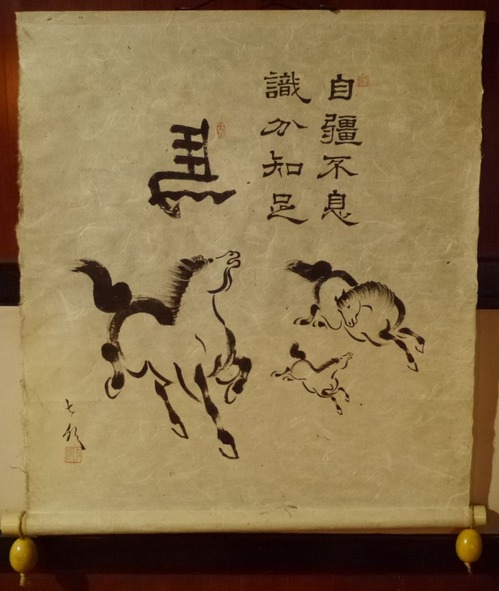 自彊不息
識分知足
馬